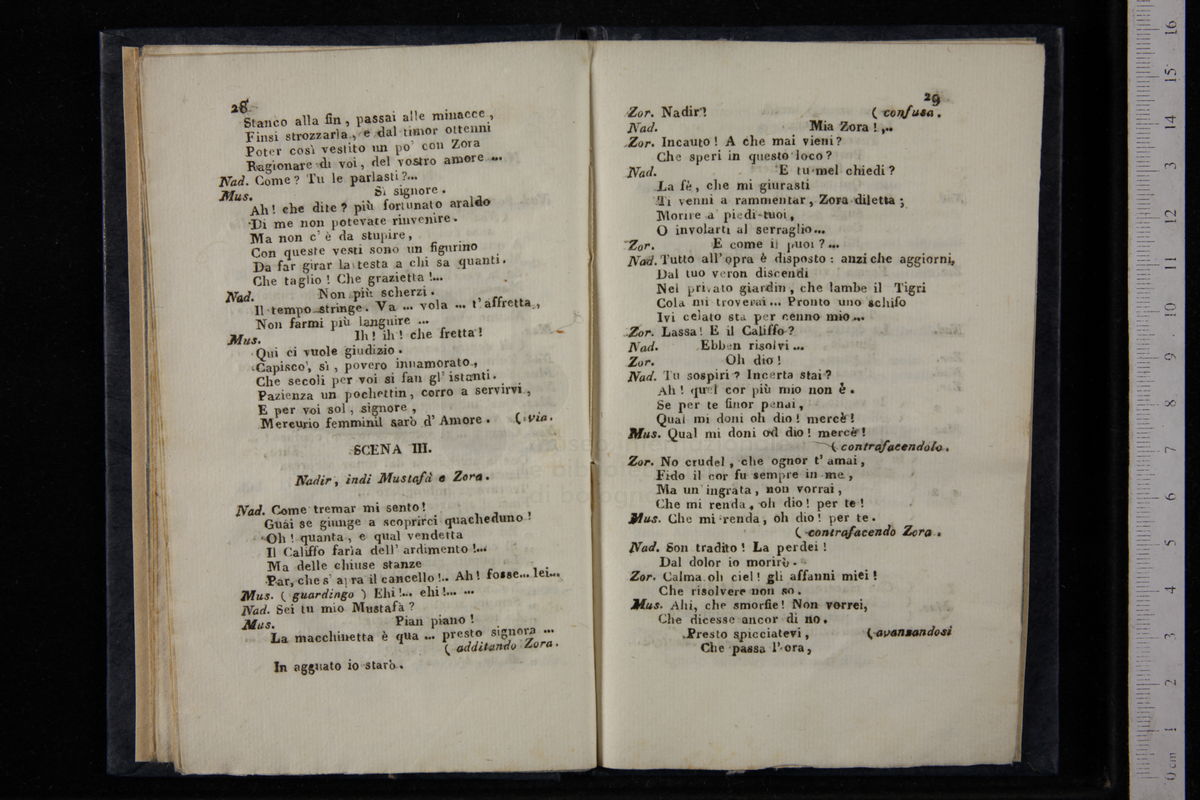 28
Stanco alla fin, passai alle minacce,
Finsi strozzarla, e dal timor ottenni
Poter così vestito un po' con Zora
Ragionare di voi, del vostro amore ...
Nad. Come? Tu le parlasti?...
Mus. Sì signore.
Ah! che dite? più fortunato araldo
Di me non potevate rinvenire.
Ma non c'è da stupire,
Con queste vesti sono un figurino
Da far girar la testa a chi sa quanti.
Che taglio! Che grazietta!...
Nad. Non più scherzi.
Il tempo stringe. Va ... vola ... t'affretta,
Non farmi più languire ...
Mus. Ih! ih! che fretta!
Qui ci vuole giudizio.
Capisco, sì, povero innamorato,
Che secoli per voi si fan gl'istanti.
Pazienza un pochettin, corro a servirvi,
E per voi sol, signore,
Mercurio femminil sarò d'Amore. (via.
SCENA III.
Nadir, indi Mustafà e Zora.
Nad. Come tremar mi sento!
Guai se giunge a scoprirci quacheduno!
Oh! quanta, e qual vendetta
Il Califfo faria dell'ardimento!...
Ma delle chiuse stanze
Par, che s'apra il cancello!.. Ah! fosse... lei...
Mus. (guardingo) Ehi!... ehi!... ...
Nad. Sei tu mio Mustafà?
Mus. Pian piano!
La macchinetta è qua ... presto signora ...
(additando Zora.
In agguato io starò.
29
Zor. Nadir! (confusa.
Nad. Mia Zora!...
Zor. Incauto! A che mai vieni?
Che speri in questo loco?
Nad. E tu mel chiedi?
La fè, che mi giurasti
Ti venni a rammentar, Zora diletta;
Morire a' piedi tuoi,
O involarti al serraglio...
Zor. E come il puoi?...
Nad. Tutto all'opra è disposto: anzi che aggiorni,
Dal tuo veron discendi
Nel privato giardin, che lambe il Tigri
Cola mi troverai... Pronto uno schifo
Ivi celato sta per cenno mio...
Zor. Lassa! E il Califfo?
Nad. Ebben risolvi...
Zor. Oh dio!
Nad. Tu sospiri? Incerta stai?
Ah! quel cor più mio non è.
Se per te finor penai,
Qual mi doni oh dio! mercè!
Mus. Qual mi doni od dio! mercè!
(contrafacendolo.
Zor. No crudel, che ognor t'amai,
Fido il cor fu sempre in me,
Ma un'ingrata, non vorrai,
Che mi renda, oh dio! per te!
Mus. Che mi renda, oh dio! per te.
(contrafacendo Zora.
Nad. Son tradito! La perdei!
Dal dolor io morirò.
Zor. Calma oh ciel! gli affanni miei!
Che risolvere non so.
Mus. Ahi, che smorfie! Non vorrei,
Che dicesse ancor di no.
Presto spicciatevi, (avansandosi
Che passa l'ora,